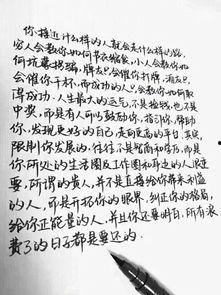 你接近什么样的人就会走什么样的路，
穷人会教你如何节衣缩食，小人会教你如
何坑蒙拐骗，牌友只会催你打牌，酒友只
会催你干杯，而成功的人只会教你如何取
得成功。人生最大的运气，不是捡钱，也不是
中奖，而是有人可以鼓励你，指引你，帮助
你，发现更好的自己，走向更高的平台。其实，
限制你发展的，往往不是智商和学历，而是
你所处的生活圈及工作圈和身边的人很重
要，所谓的贵人，并不是直接给你带来利益
的人，而是开拓你的眼界，纠正你的格局，
给你正能量的人，并且你还要明白，所有浪
费了的日子都是要还的。